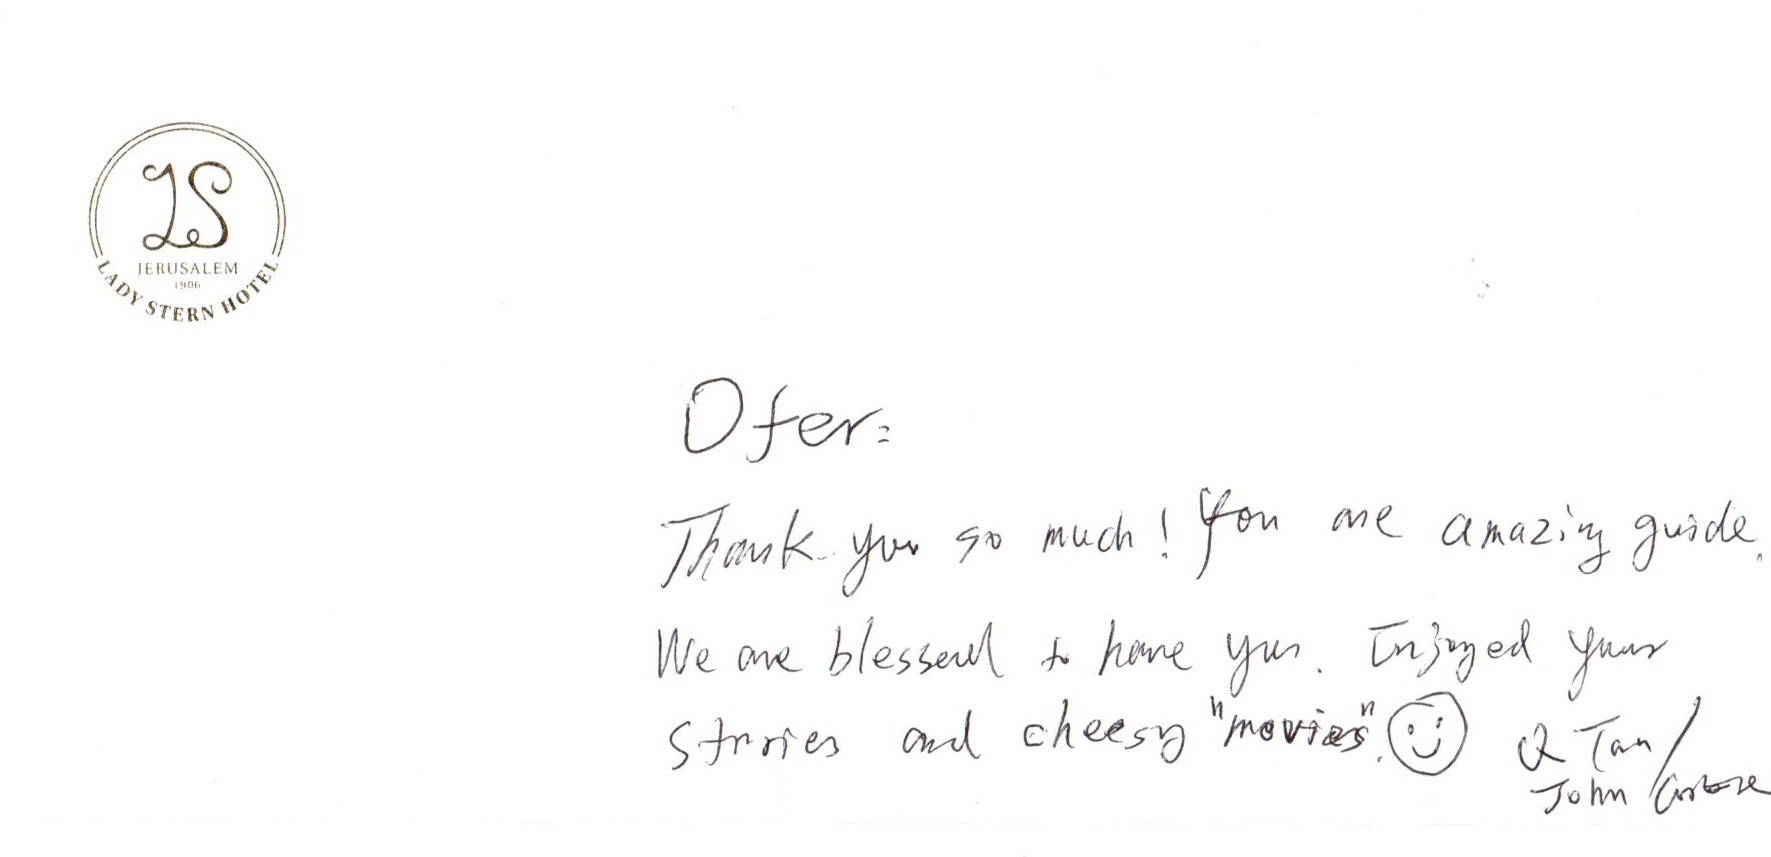 LS
JERUSALEM
1906
LADY STERN HOTEL
Ofer:
Thank you so much! You are amazing guide.
We are blessed to have you. Enjoyed your
stories and cheesy "movies". Q Tan/
John